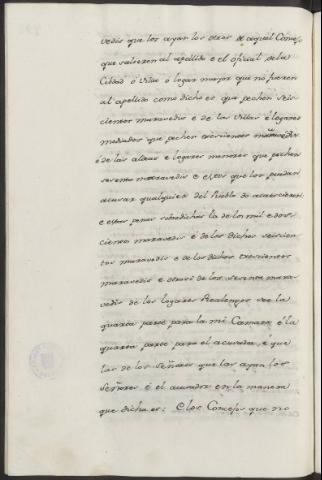 vedis que los ayan los otros de aquel Conce,
que salieren al apellido e el oficial dela
Cibdad ó Villa ó logar mayor que nó fueren
al apellido como dicho es que pechen seis
cientos maravedis é de las Villas é logares
medianos que pechen trescientos maravedis
é de las aldeas e logares menores que pechen
sesenta maravedis e estos que los puedan
acusar qualquier del Pueblo do acaesciere
e estas penas sobredichas la de los mil e dos
cientos maravedis é de los dichos seiscien
tos maravedis e de los dichos trescientos
maravedis e otrosi de los sesenta mara
vedis de los logares Realengos sea la
quarta parte para la mi Camara é la
quarta parte para el acusador, é que
las de los Señores que las ayan los
Señores é el acusador en la manera
que dicha es: E los Concejos que no